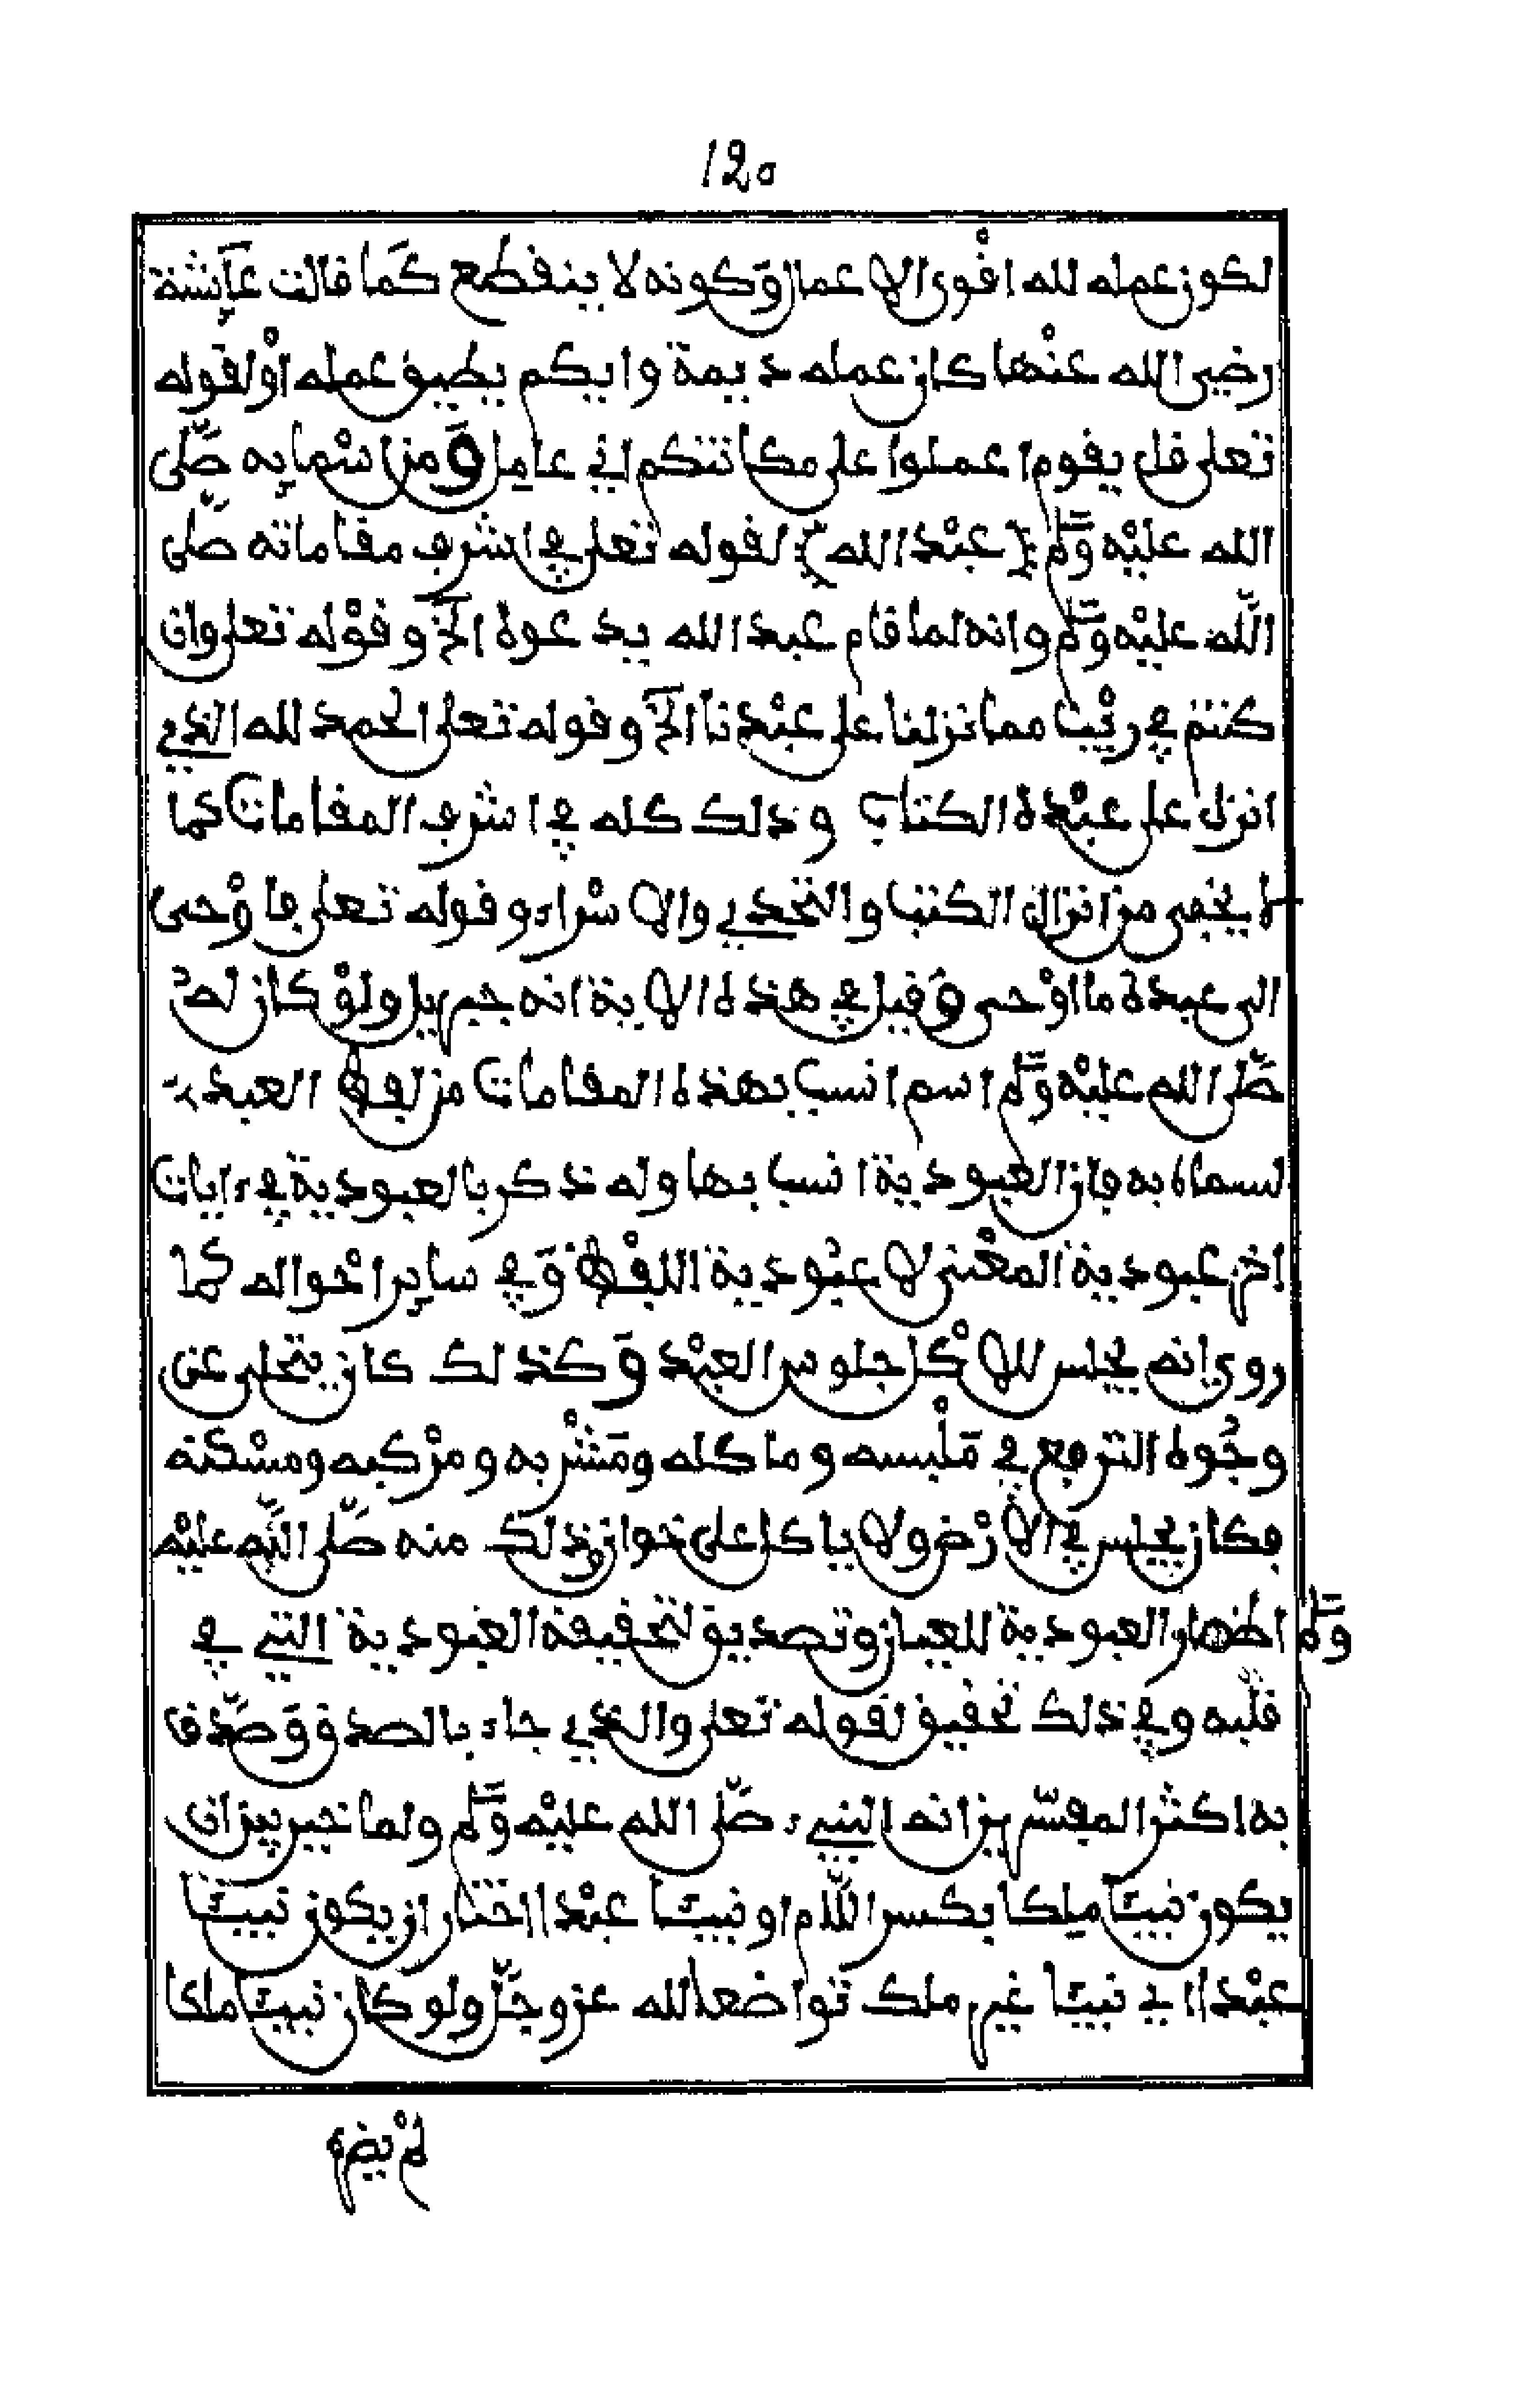 120
لكون عمله لله افوى الاعمال وكونه لا ينفطع كما فالت عآيشة
رضى الله عنها كان عمله ديمة وايكم يطيق عمله او لفوله
تعلى فل يفوم اعملوا على مكانتكم اني عامل ومن اسمايه صلى
الله عليه وسلم عبد الله لفوله تعلى في اشرف مفاماته صلى
الله عليه وسلم وانه لما فام عبد الله يدعوه الخ وفوله تعلى وان
كنتم في ريب مما نزلنا على عبدنا الخ وفوله تعلى الحمد لله الذي
انزل على عبده الكتاب وذلك كله في اشرف المفامات كما
لا يخفى من انزال الكتب والتحدي والاسراء وفوله تعلى فاوحى
الى عبده ما اوحى وفيل في هذه الاية انه جبريل ولو كان له
صلى الله عليه وسلم اسم انسب بهذه المفامات من لفظ العبد
لسماه به فان العبودية انسب بها وله ذكر بالعبودية في ءايات
اخر عبودية المعنى لا عبودية اللفظ وفي ساير احواله كما
روي انه يجلس للاكل جلوس العبد وكذلك كان يتخلى عن
وجوه الترفع في ملبسه وماكله ومشربه ومركبه ومسكنه
فكان يجلس في الارض ولا ياكل على خوان وذلك منه صلى الله عليه
وسلم اظهار العبودية للعيان وتصديق لتحفيفة العبودية التي في
فلبه وفي ذلك تحفيق لفوله تعلى والذي جاء بالصدق وصدق
به اكثر المفسرين انه النبيء صلى الله عليه وسلم ولما خير بين ان
يكون نبيئا ملكا بكسر اللام او نبيئا عبدا اختار ان يكون نبيئا
عبدا اي نبيئا غير ملك تواضعا لله عز وجل ولو كان نبيئا ملكا
لم يضره